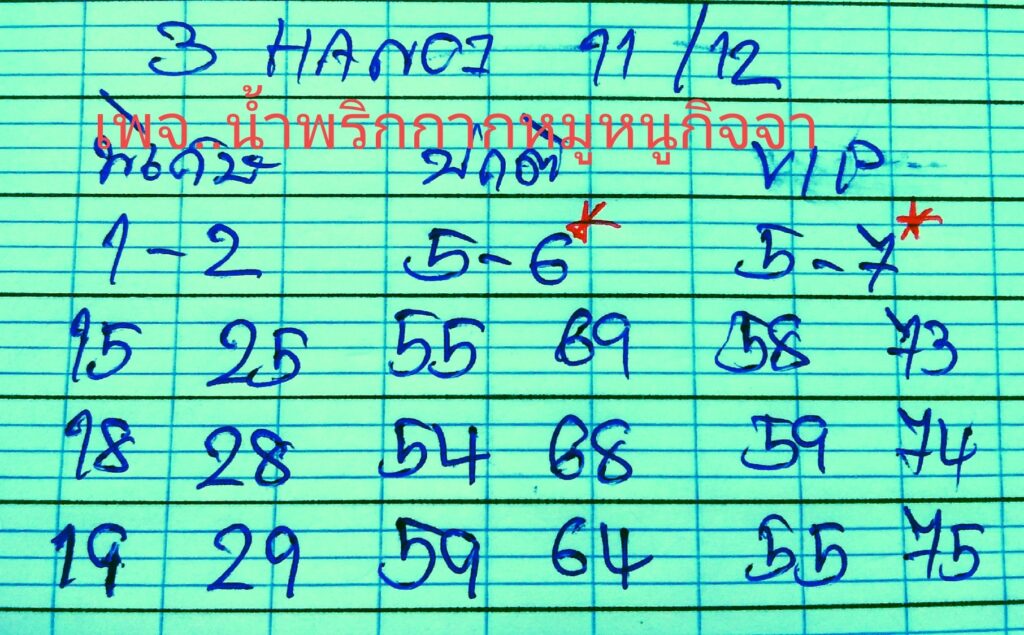 3 HANOI 11/12
เพจ..น้ำพริกกากหมูหนูกิจจา
พิเศษ ปกติ VIP
1-2 5-6* 5-7*
15 25 55 69 58 73
18 28 54 68 59 74
19 29 59 64 55 75